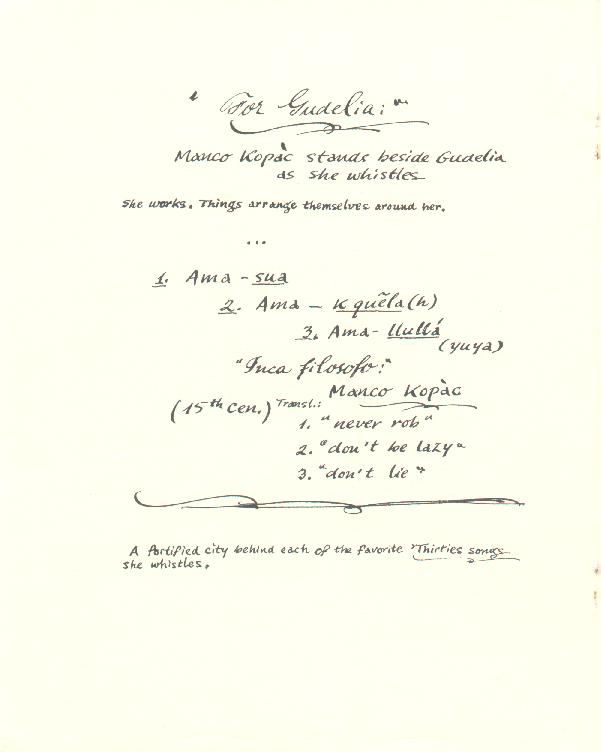 " For Gudelia: "
Manco Kopàc stands beside Gudelia
as she whistles
She works. Things arrange themselves around her.
...
1. Ama - sua
2. Ama - kquẽla(h)
3. Ama - llullá
(yuya)
"Inca filosofo:"
Manco Kopàc
(15th cen.) Transl.:
1. "never rob"
2. "don't be lazy"
3. "don't lie"
A fortified city behind each of the favorite 'Thirties songs
she whistles.